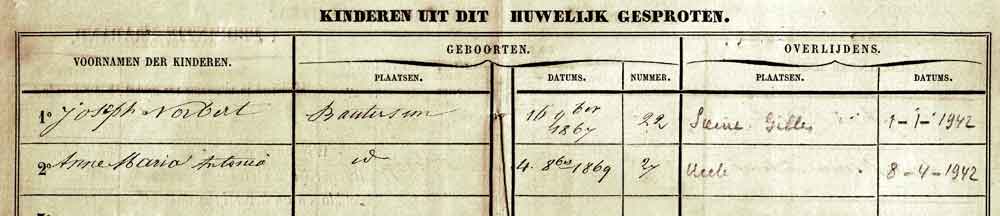 KINDEREN UIT DIT HUWELIJK GESPROTEN.
VOORNAMEN DER KINDEREN. GEBOORTEN. OVERLIJDENS.
PLAATSEN. DATUMS. NUMMER. PLAATSEN. DATUMS.
1° Joseph Norbert Bautersem 16 9ber 1867 22 Gilles 1-1-1942
2° Anne Maria Antonia id 4 8ber 1869 Uccle 8-4-1942